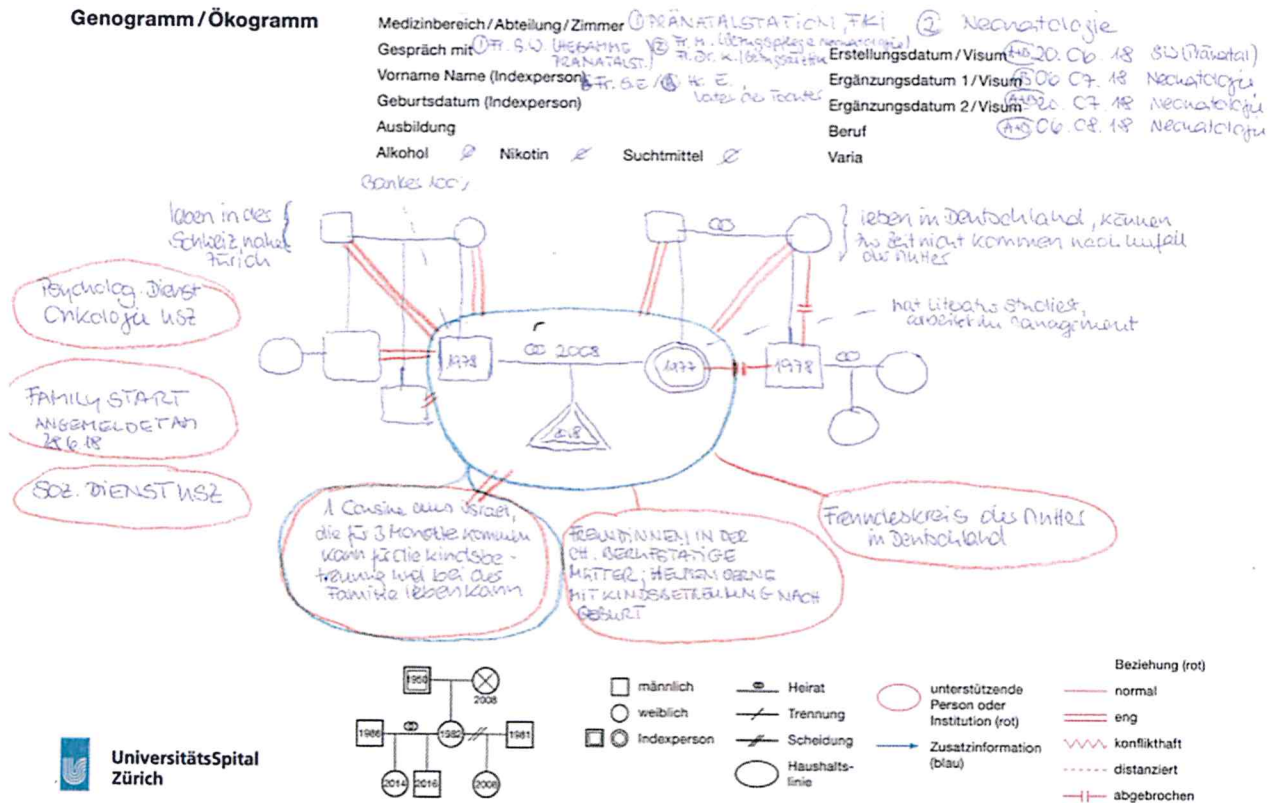 Genogramm/Ökogramm
Medizinbereich/Abteilung/Zimmer ① PRÄNATALSTATION, FKI ② Neonatologie
Gespräch mit ① Fr. S.W. (HEBAMME PRÄNATALST.) ② Fr. M. Neonatologie) Fr. Dr. K.
Vorname Name (Indexperson) Fr. S.E / Hr. E., Vater der Tochter
Geburtsdatum (Indexperson)
Ausbildung
Alkohol ∅ Nikotin ∅ Suchtmittel ∅
Erstellungsdatum/Visum A+B 20.06.18 SW (Pränatal)
Ergänzungsdatum 1/Visum B 06 07.18 Neonatologie
Ergänzungsdatum 2/Visum A+B 20.07.18 Neonatologie
Beruf A+B 06.08.18 Neonatologie
Varia
Banker 100%
leben in der
Schweiz, nahe
Zürich
leben in Deutschland, können
zur Zeit nicht kommen nach Unfall
der Mutter
hat Literatur studiert,
arbeitet im Management
Psycholog. Dienst
Onkologie USZ
FAMILY START
ANGEMELDET AM
28.6.18
SOZ. DIENST USZ
1978
∞ 2008
1977
1978
2018
1 Cousine aus Israel,
die für 3 Monate kommen
kann für die Kindsbe-
treuung und bei der
Familie leben kann
FREUNDINNEN IN DER
CH. BERUFSTÄTIGE
MÜTTER; HELFEN GERNE
MIT KINDSBETREUUNG NACH
GEBURT
Freundeskreis der Mutter
in Deutschland
1950
2008
1986
1982
1981
2014
2016
2006
männlich
weiblich
Indexperson
Heirat
Trennung
Scheidung
Haushalts-
linie
unterstützende
Person oder
Institution (rot)
Zusatzinformation
(blau)
Beziehung (rot)
normal
eng
konflikthaft
distanziert
abgebrochen
UniversitätsSpital
Zürich